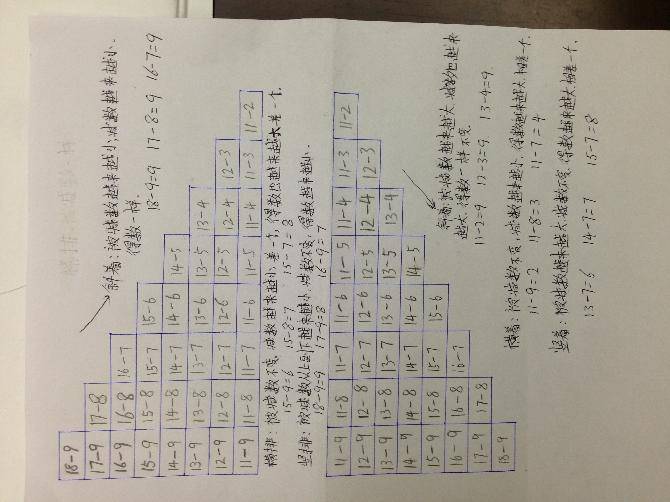 斜着：被减数越来越小，减数越来越小，
得数一样。
18-9=9 17-8=9 16-7=9
18-9
17-9 17-8
16-9 16-8 16-7
15-9 15-8 15-7 15-6
14-9 14-8 14-7 14-6 14-5
13-9 13-8 13-7 13-6 13-5 13-4
12-9 12-8 12-7 12-6 12-5 12-4 12-3
11-9 11-8 11-7 11-6 11-5 11-4 11-3 11-2
横排：被减数不变，减数越来越小，差一个，得数也越来越大差一个。
15-9=6 15-8=7 15-7=8
竖排：被减数从上至下越来越小，减数不变，得数越来越小。
18-9=9 17-9=8 16-9=7
11-9 11-8 11-7 11-6 11-5 11-4 11-3 11-2
12-9 12-8 12-7 12-6 12-5 12-4 12-3
13-9 13-8 13-7 13-6 13-5 13-4
14-9 14-8 14-7 14-6 14-5
15-9 15-8 15-7 15-6
16-9 16-8 16-7
17-9 17-8
18-9
斜着：被减数越来越大，减数也越来
越大，得数一样不变。
11-2=9 13-4=9
横着：被减数不变，减数越来越小，得数越来越大相差一个。
11-9=2 11-8=3 11-7=4
竖着：被减数越来越大，减数不变，得数越来越大相差一个。
13-7=6 14-7=7 15-7=8